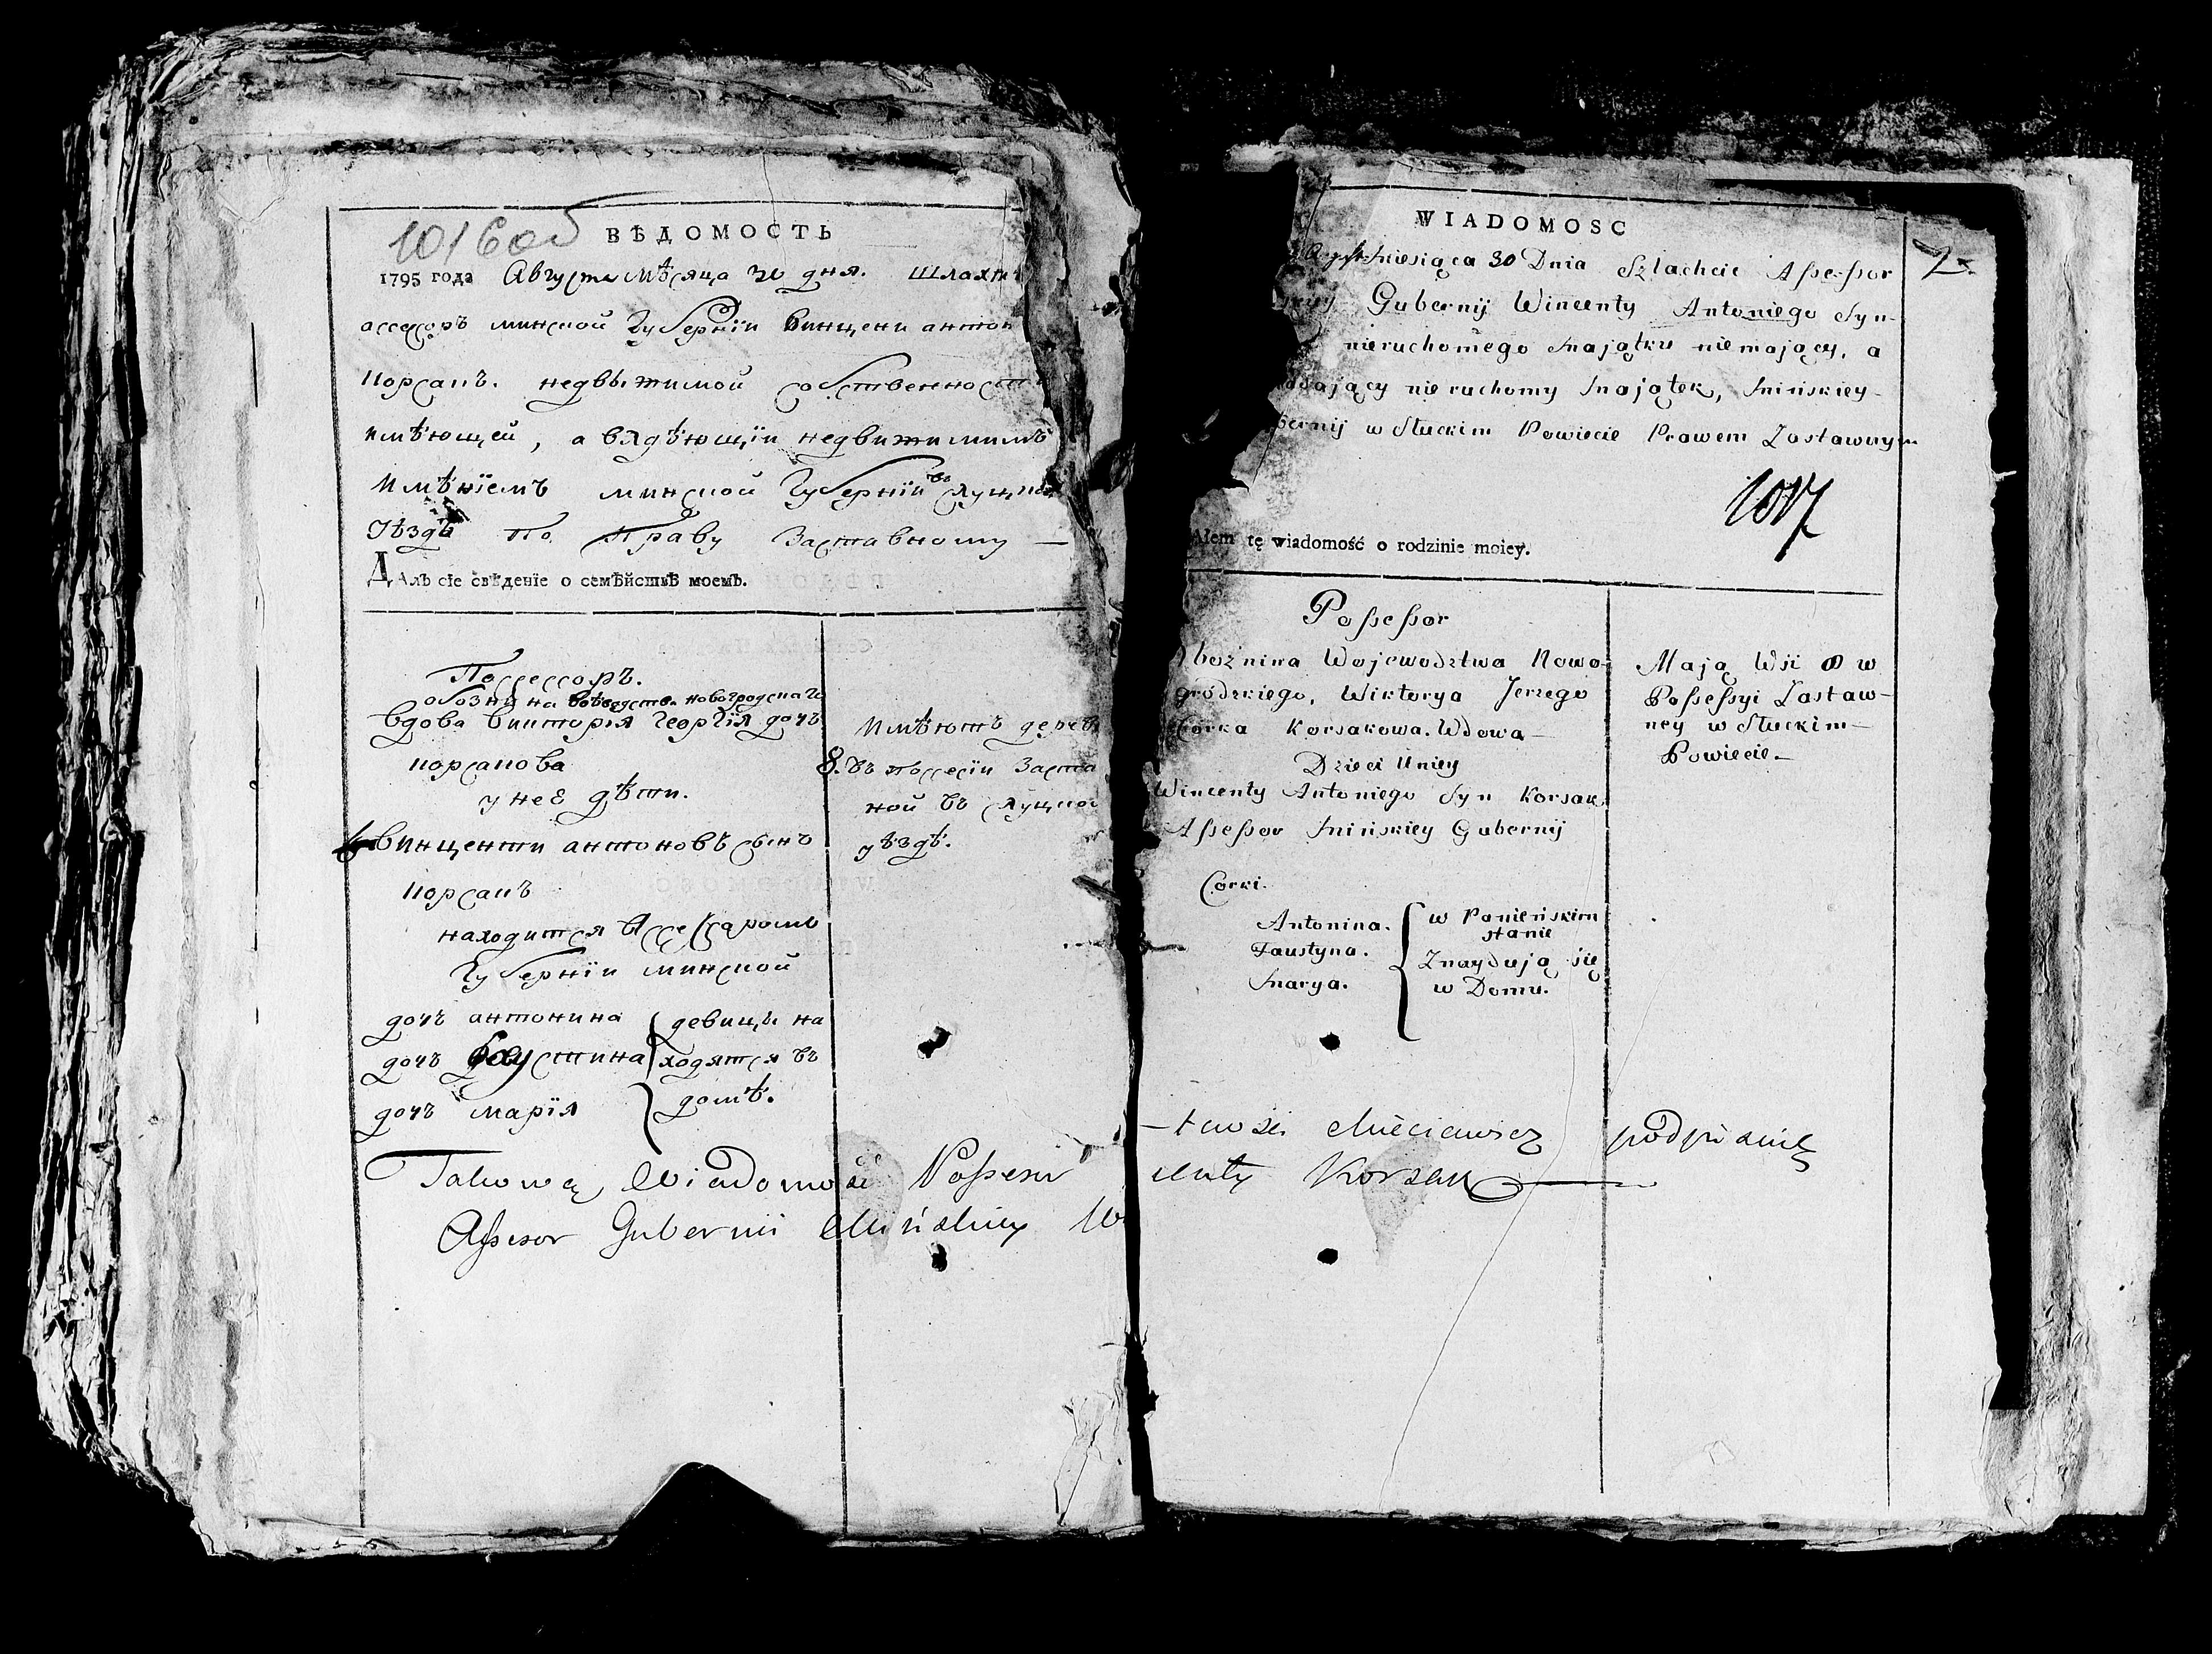 1016об
ВѢДОМОСТЬ
1795 года Августа мѣсяца 30 дня. Шляхти
ассесоръ минской Губернïи винцени антон
корсакъ. недвыжимой собственност
имѣющей, а влядѣющïи недвижимимъ
имѣнïемъ минской Губернïи въ слуцко
уѣздѣ по праву заставному —
ДАлъ сïе свѣденïе о семѣйствѣ моемъ.
Поссесоръ.
обознина воеводства новогродскаго
вдова викторïя Георгïя дочъ
корсакова
у неё дѣти.
винценти антоновъ сынъ
корсакъ
находится Ассессаромъ
Губернïи минской
дочъ антонина
дочъ Фаустина
дочъ марïя
девицы на
ходятся въ
домѣ.
имѣютъ дерев
8. въ поссесïи заста
ной въ слуцко
уѣздѣ.
Takową Wiadomość Possesii
Assesor Gubernii Mińskiey W
WIADOMOSC
2
miesiąca 30 Dnia Szlachcic Assessor
Gubernij Wincenty Antoniego Syn
nieruchomego majątku niemający, a
adający nieruchomy majątek, mińskiey
bernij w Słuckim Powiecie Prawem Zastawnym
1017
Ałem tę wiadomość o rodzinie moiey.
Possessor
Oboźnina Wojewodztwa Nowo-
gródzkiego, Wiktorya Jerzego
Corka Korsakowa. Wdowa —
Dzieci Uniey
Wincenty Antoniego Syn Korsak
Assessor mińskiey Gubernij
Corki.
Antonina.
Faustyna.
Marya.
w Panieńskim
stanie
Znaydują się
w Domu.
Mają Wsi 8 w
Possessyi Zastaw-
ney w Słuckim —
Powiecie —
podpisuię
centy Korsak